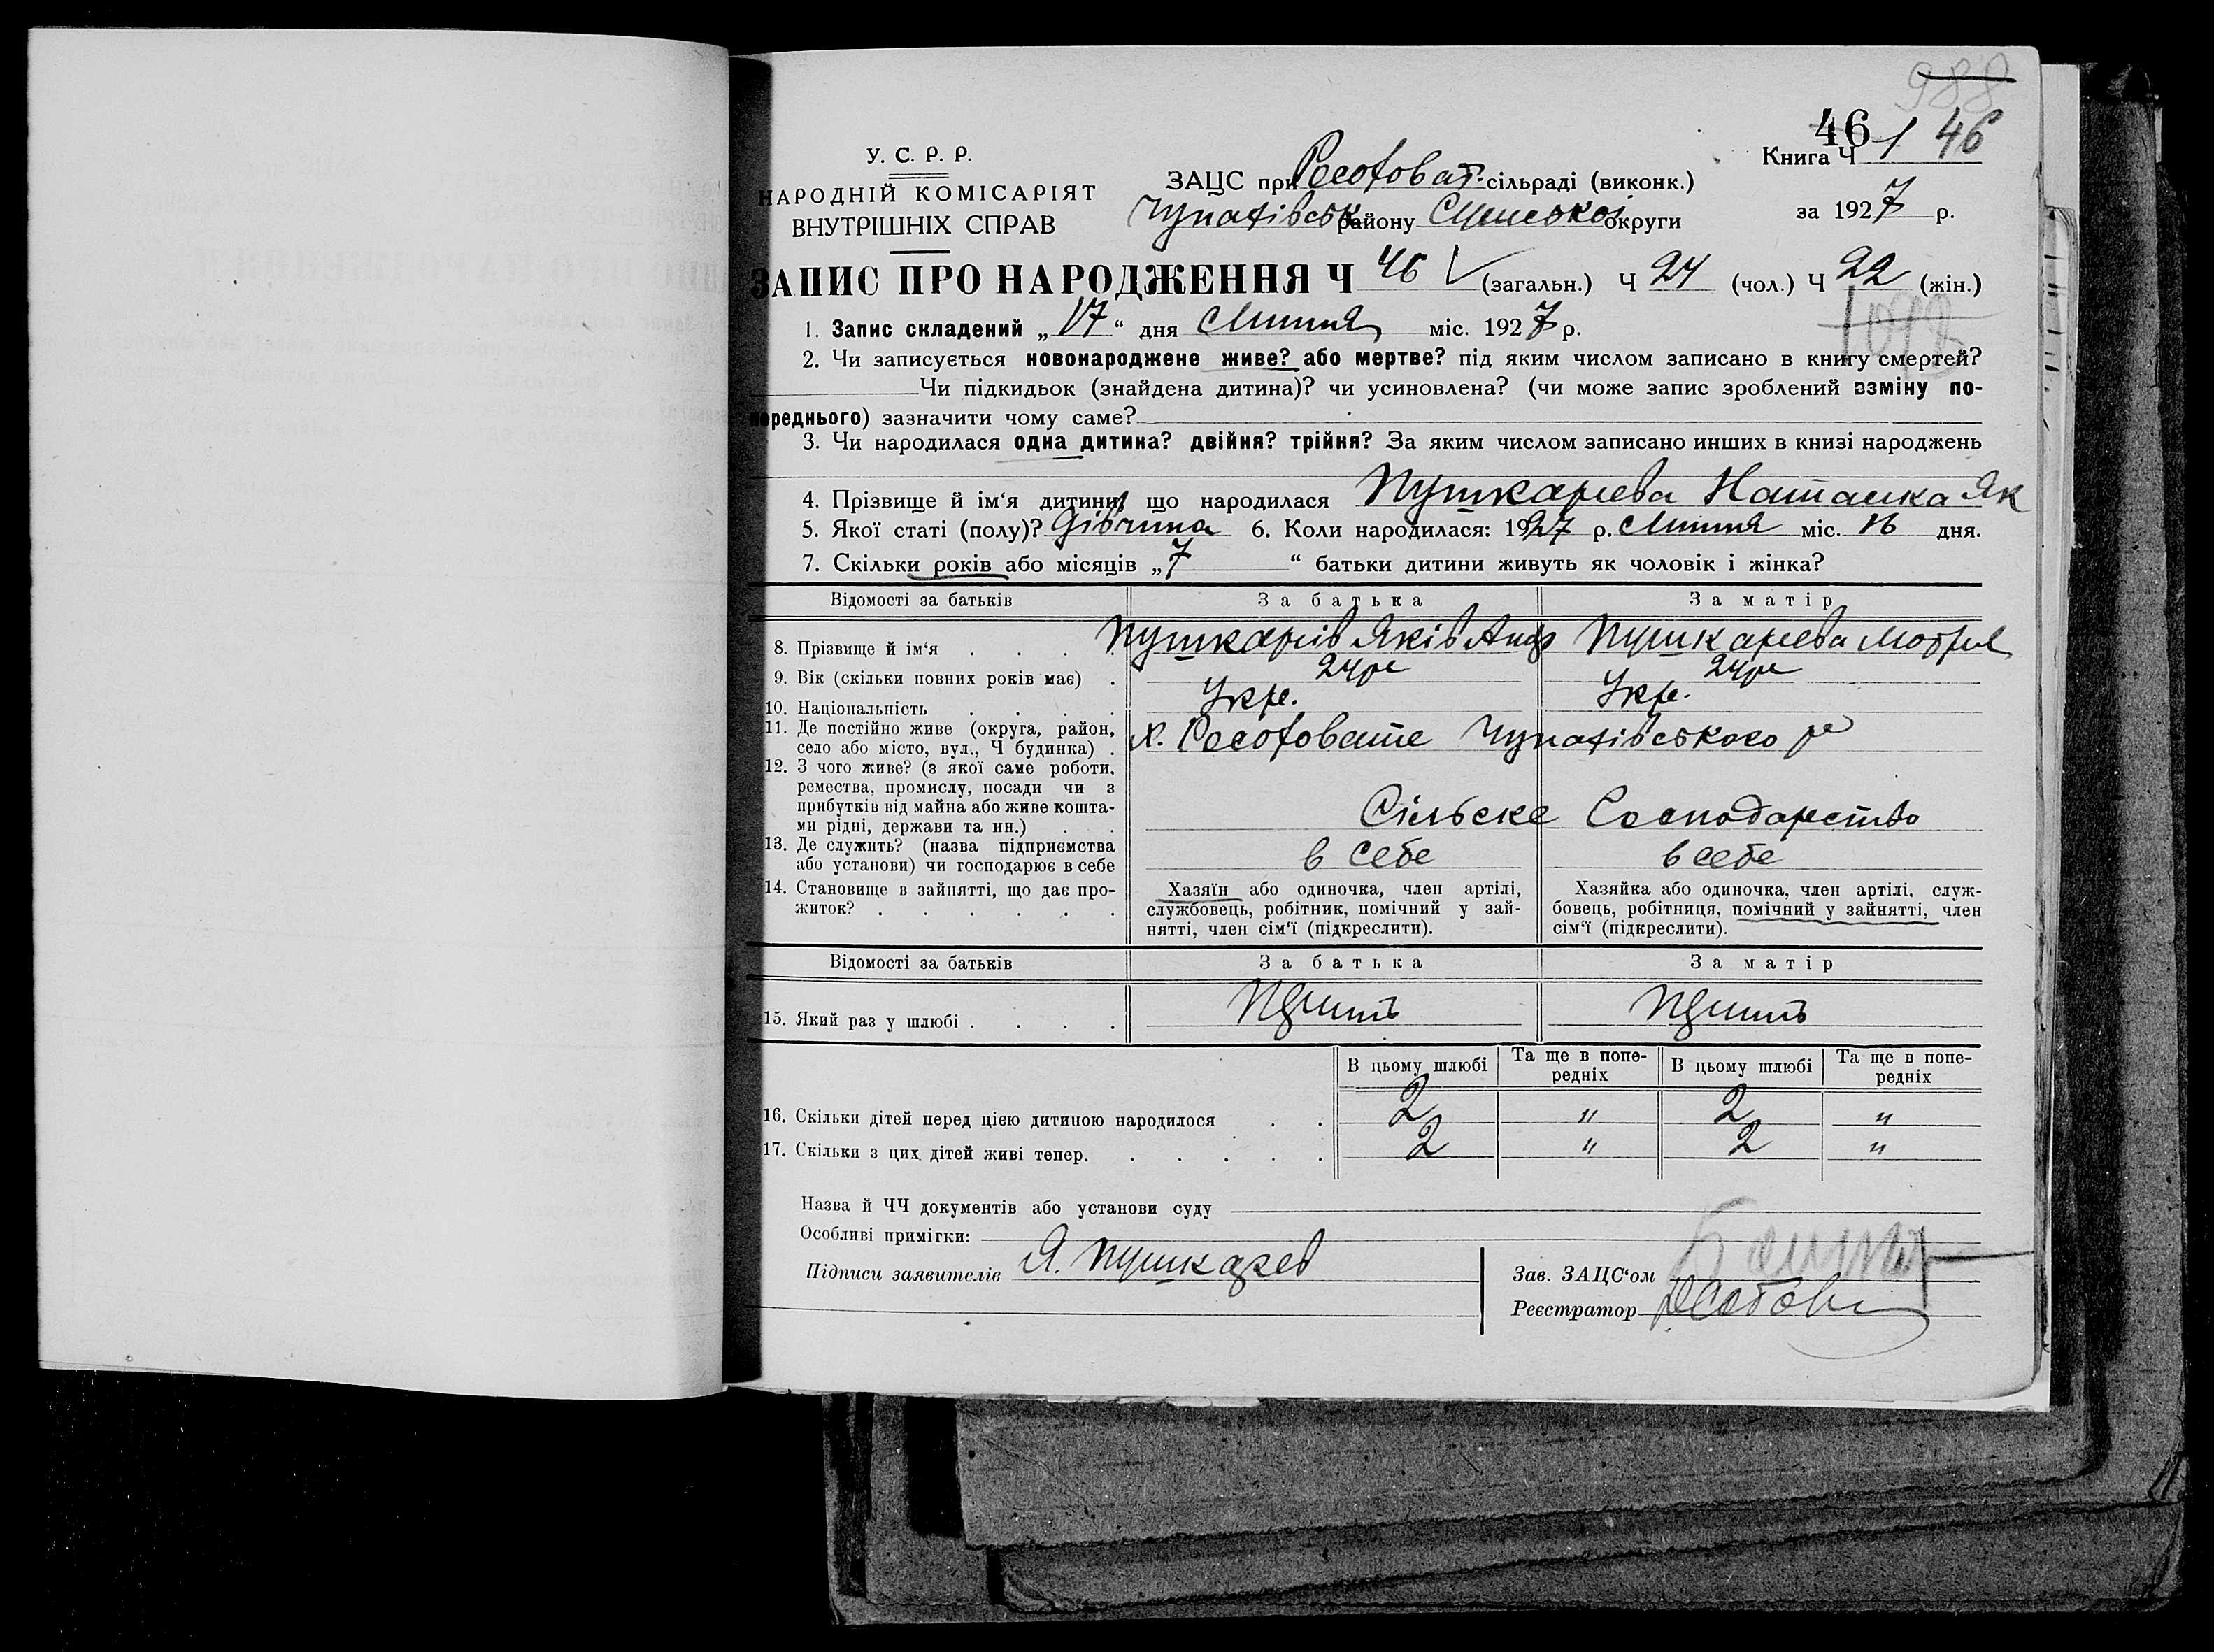 988
46 1 46
У. С. Р. Р.
НАРОДНІЙ КОМІСАРІЯТ
ВНУТРІШНІХ СПРАВ
ЗАЦС при сільраді (виконк.)
району Сумської округи
Книга Ч
за 1927 р.
ЗАПИС ПРО НАРОДЖЕННЯ Ч 46 (загальн.) Ч 24 (чол.) Ч 22 (жін.)
1. Запис складений „17“ дня Липня міс. 1927 р.
2. Чи записується новонароджене живе? або мертве? під яким числом записано в книгу смертей?
Чи підкидьок (знайдена дитина)? чи усиновлена? (чи може запис зроблений взміну по-
переднього) зазначити чому саме?
3. Чи народилася одна дитина? двійня? трійня? За яким числом записано инших в книзі народжень
4. Прізвище й ім‘я дитини, що народилася Пушкарева Наталка Як
5. Якої статі (полу)? дівчина 6. Коли народилася: 1927 р. Липня міс. 16 дня.
7. Скільки років або місяців „7“ батьки дитини живуть як чоловік і жінка?
Відомості за батьків За батька За матір
8. Прізвище й ім‘я Пушкарів Яків Анд Пушкарева Мотря
9. Вік (скільки повних років має) 24 р 24 р
10. Національність Укр. Укр.
11. Де постійно живе (округа, район,
село або місто, вул., Ч будинка) х.
12. З чого живе? (з якої саме роботи,
ремества, промислу, посади чи з
прибутків від майна або живе кошта-
ми рідні, держави та ин.) Сільске Господарство
13. Де служить? (назва підприємства
або установи) чи господарює в себе в себе в себе
14. Становище в зайнятті, що дає про-
житок?
Хазяїн або одиночка, член артілі,
службовець, робітник, помічний у зай-
нятті, член сім‘ї (підкреслити).
Хазяйка або одиночка, член артілі, служ-
бовець, робітниця, помічний у зайнятті, член
сім‘ї (підкреслити).
Відомості за батьків За батька За матір
15. Який раз у шлюбі
В цьому шлюбі Та ще в попе-
редніх В цьому шлюбі Та ще в попе-
редніх
16. Скільки дітей перед цією дитиною народилося 2 „ 2 „
17. Скільки з цих дітей живі тепер. 2 „ 2 „
Назва й ЧЧ документів або установи суду
Особливі примітки:
Підписи заявителів Я. Пушкарев
Зав. ЗАЦС‘ом
Реєстратор